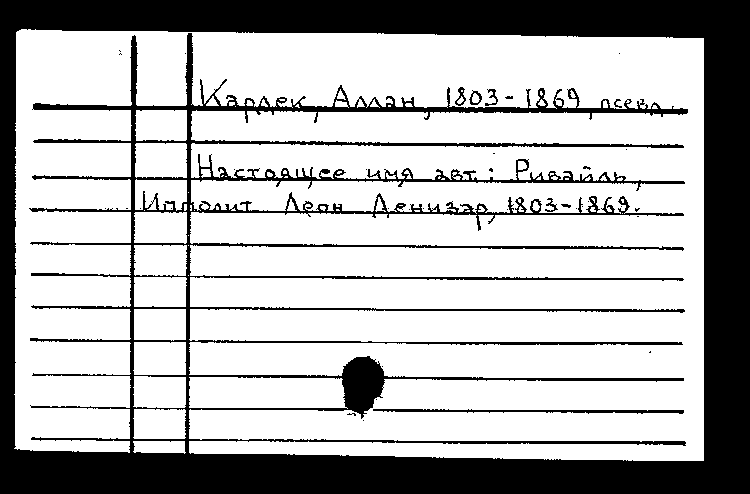 Кардек, Аллан, 1803-1869, псевд.
Настоящее имя авт.: Ривайль,
Ипполит Леон Денизар, 1803-1869.